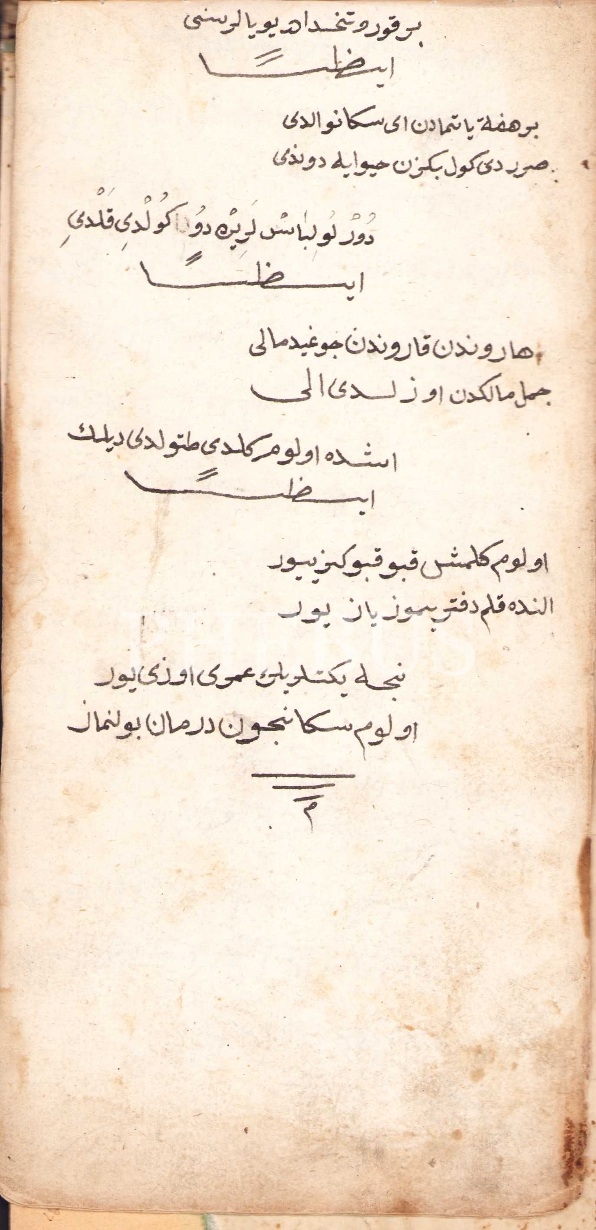 بر قورو تخته در یویا لر سنی
ایضاً
بر هفته یاتمادن ای سکا نوالدی
صرردی کول بکزن حیوایه دوندی
دور لو لباسلریڭه دور کولدی قلدی
ایضاً
هاروندن قاروندن جوغیدمالی
جمل مالکدن اوزلدی الی
اشده اولوم کلدی طتولدی دیلك
ایضاً
اولوم کلمش قبو قبو کزییور
النده قلم دفتریموز یازیور
نیجه یکتلریك عمری اوزییور
اولوم سکا نیجون درمان بولنماز
م